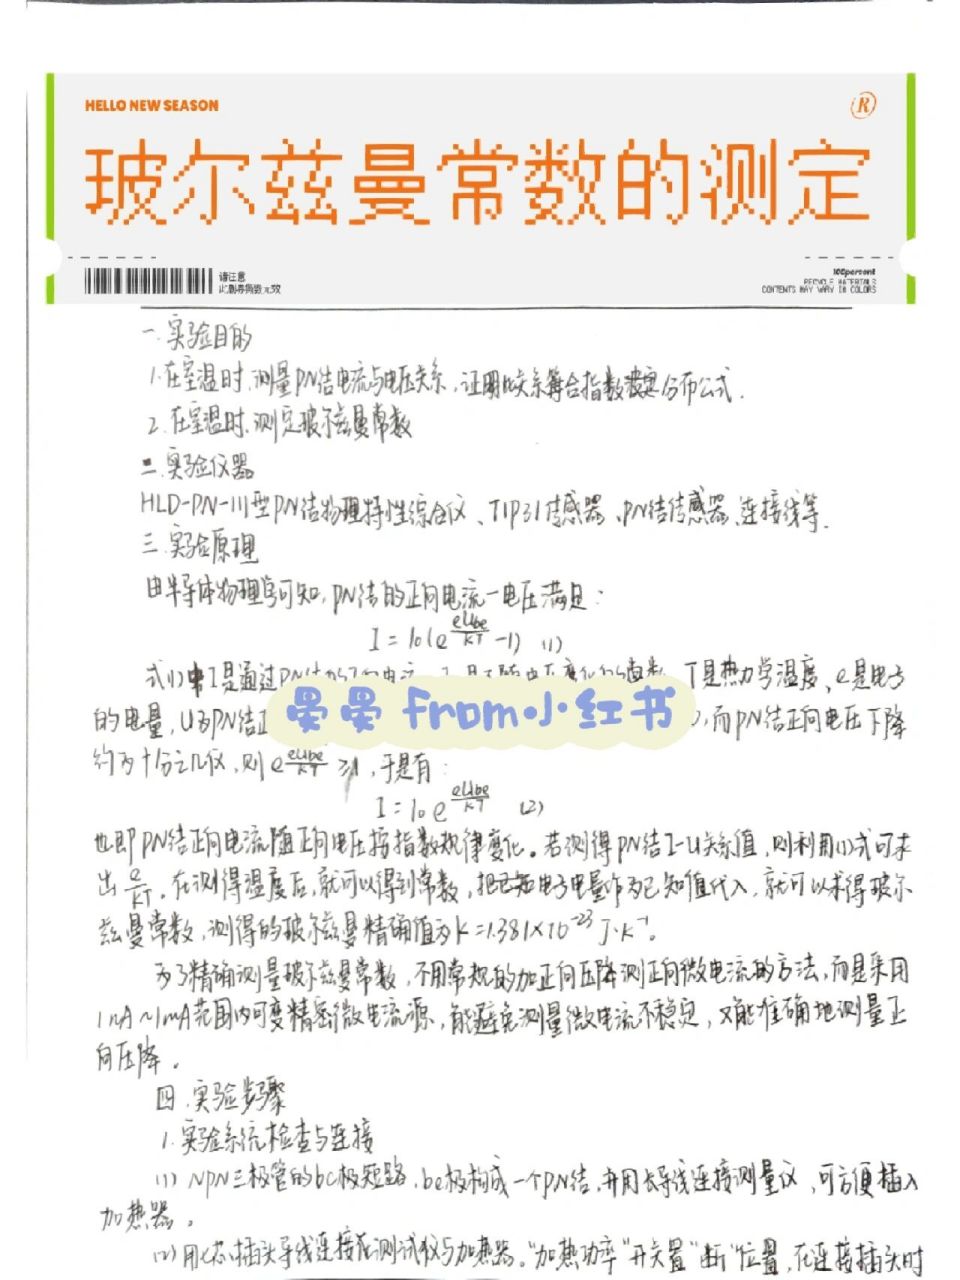 HELLO NEW SEASON
R
玻尔兹曼常数的测定
请注意
此副券撕毁无效
100percent
RECYCLE MATERIALS
CONTENTS MAY VARY IN COLORS
一.实验目的
1.在室温时,测量PN结电流与电压关系,证明此关系符合指数分布公式.
2.在室温时,测定玻尔兹曼常数
二.实验仪器
HLD-PN-III型PN结物理特性综合仪、TIP31传感器、PN结传感器、连接线等.
三.实验原理
由半导体物理学可知,PN结的正向电流一电压满足:
I=I0(e^{eUbe/kT}-1) (1)
式(1)中I是通过PN结的正向电流、T是热力学温度、e是电子
的电量,U为PN结正
晏晏 From小红书
,而PN结正向电压下降
约为十分之几伏,则e^{eUbe/kT}≫1,于是有:
I=I0e^{eUbe/kT} (2)
也即PN结正向电流随正向电压按指数规律变化。若测得PN结I-U关系值,则利用(1)式可求
出e/kT。在测得温度后,就可以得到常数,把已知电子电量作为已知值代入,就可以求得玻尔
兹曼常数,测得的玻尔兹曼精确值为k=1.381×10^{-23}J·K^{-1}。
为了精确测量玻尔兹曼常数,不用常规的加正向压降测正向微电流的方法,而是采用
1nA~1mA范围内可变精密微电流源,能避免测量微电流不稳定,又能准确地测量正
向压降。
四.实验步骤
1.实验系统检查与连接
(1) NPN三极管的bc极短路,be极构成一个PN结,并用长导线连接测量仪,可方便插入
加热器。
(2)用七芯插头导线连接在测试仪与加热器。“加热功率”开关置“断”位置,在连接插头时